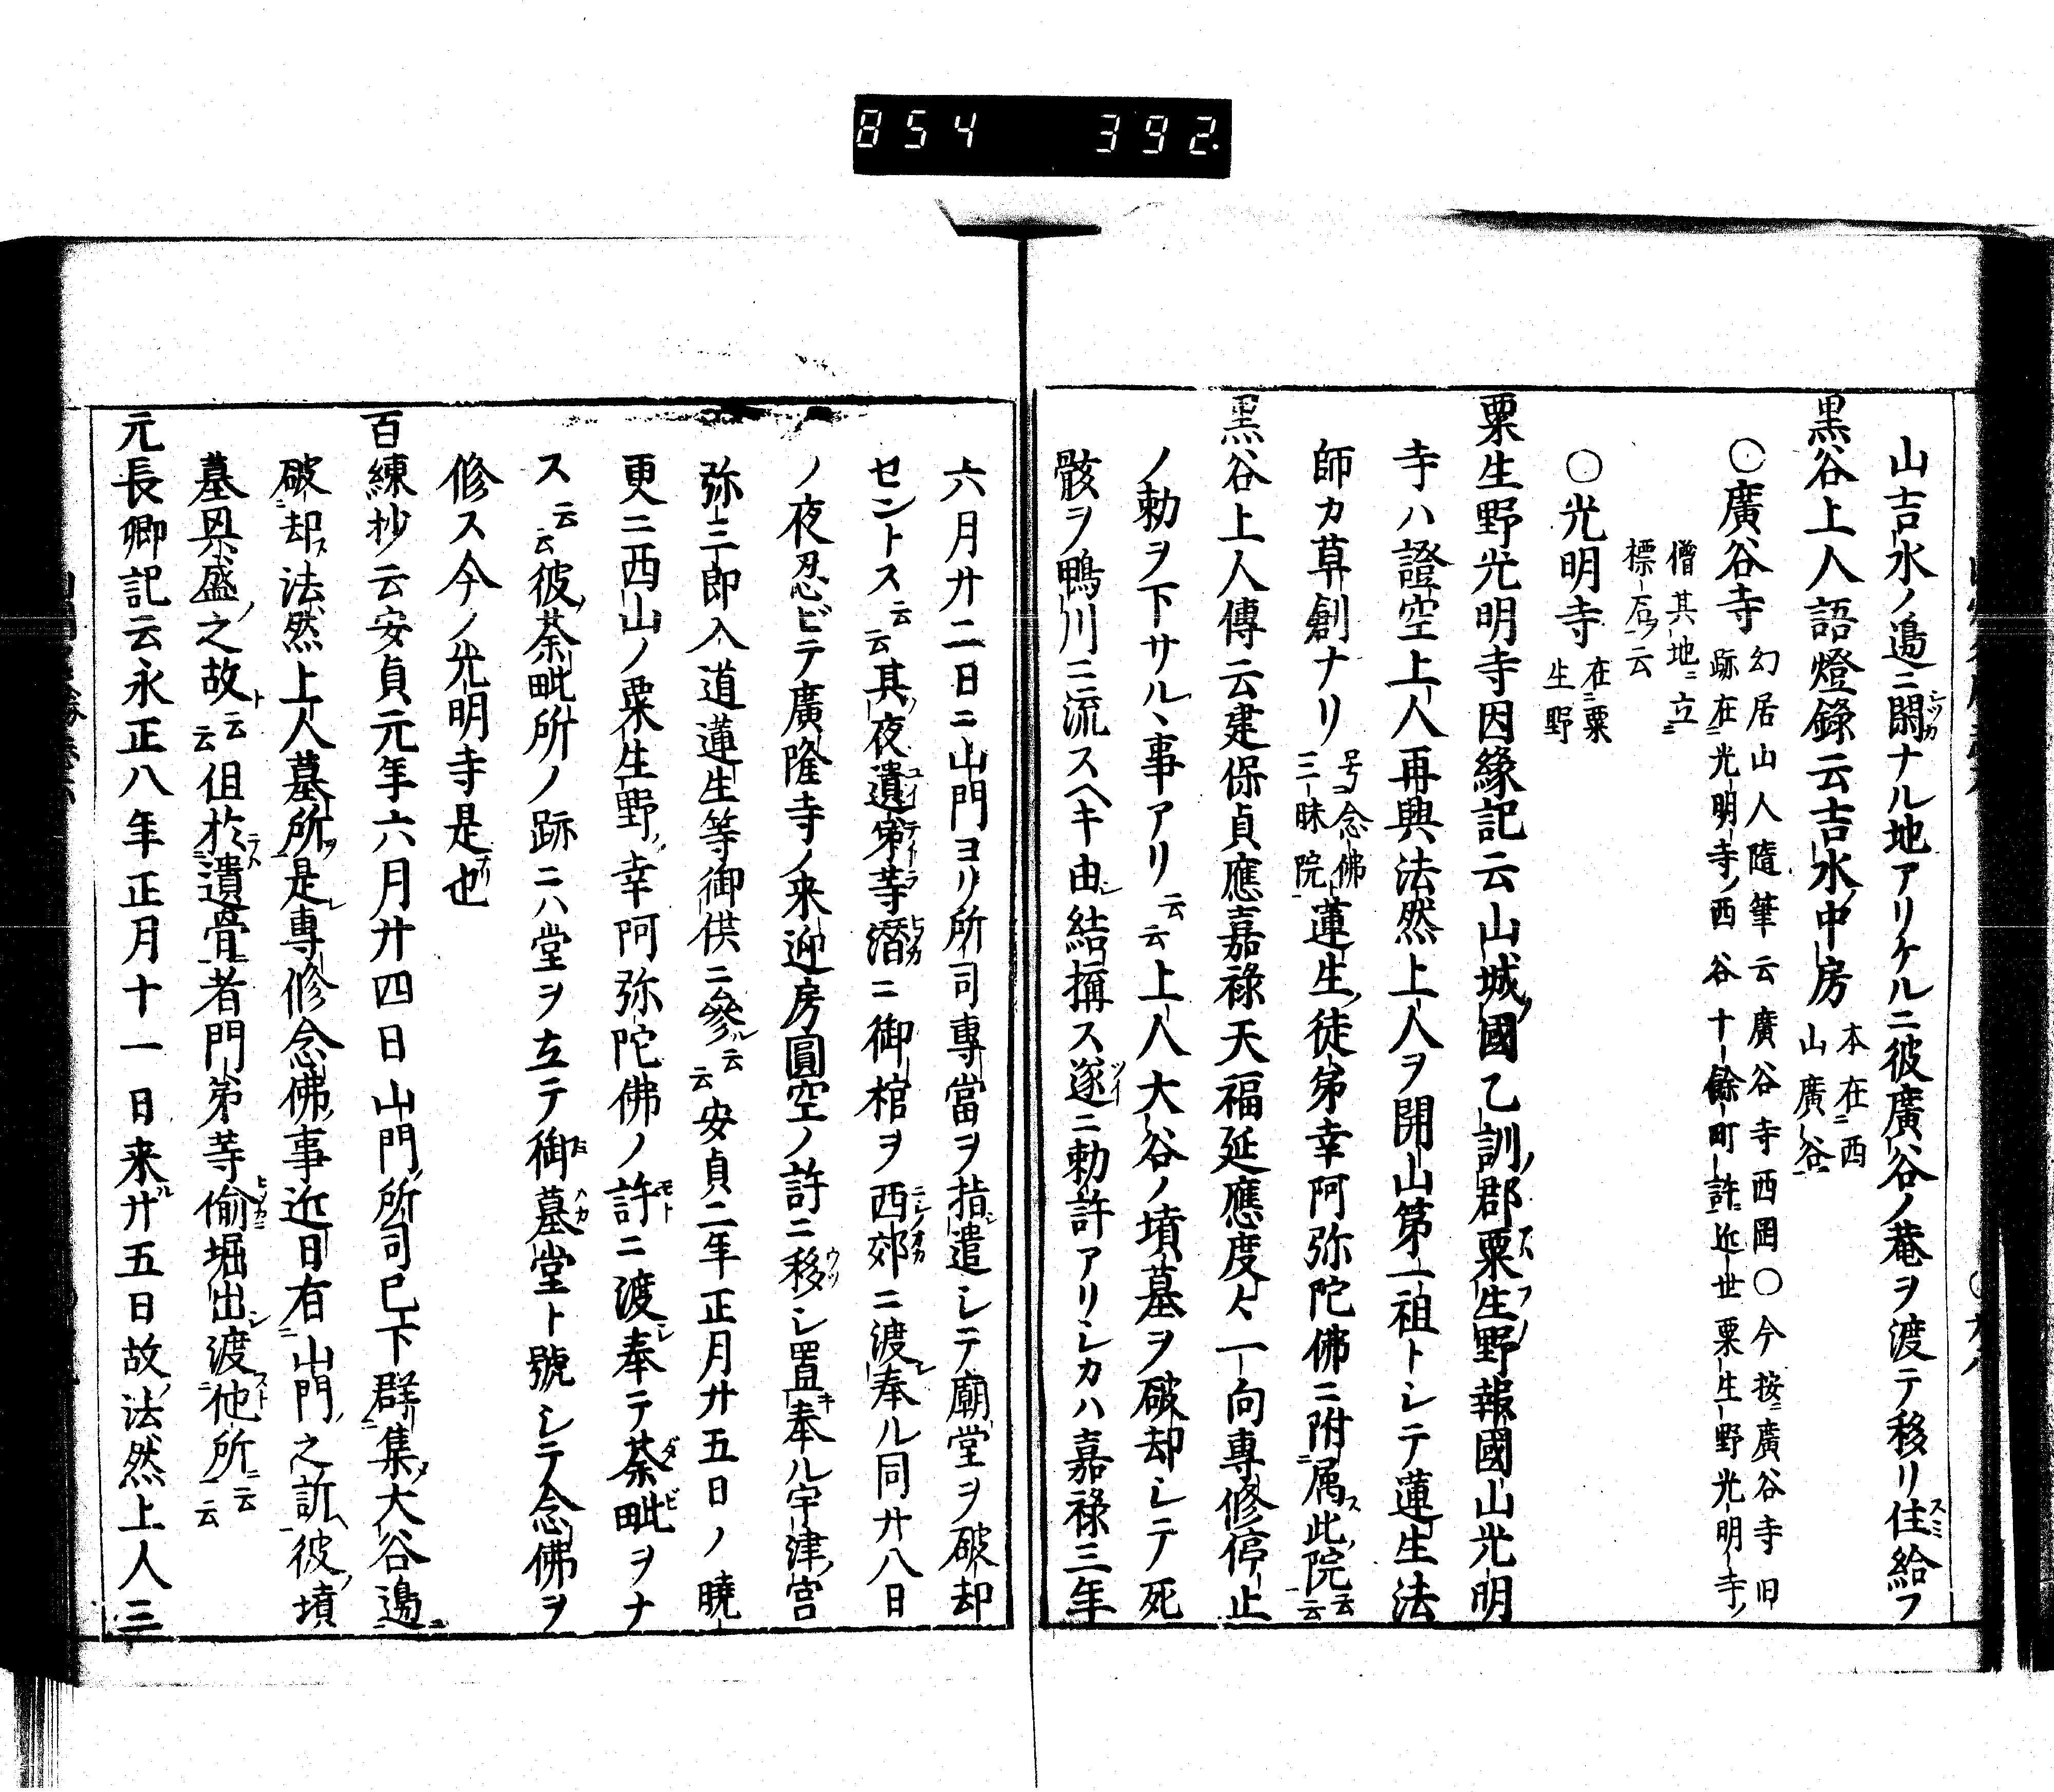 854 392.
山吉水ノ邉ニ閑ナル地アリケルニ彼廣谷ノ菴ヲ渡テ移リ住給フ
黒谷上人語燈錄云吉水ノ中房 本在西山廣谷
〇廣谷寺 幻居山人隨筆云廣谷寺西岡〇今按廣谷寺旧
跡在光明寺ノ西谷十餘町許近世粟生野光明寺ノ
僧其地ニ立
標石ヲ云
〇光明寺 在粟生野
粟生野光明寺因縁記云山城國乙訓郡粟生野報國山光明
寺ハ證空上人再興法然上人ヲ開山第一祖トシテ蓮生法
師カ草創ナリ 号念佛三昧院 蓮生ノ徒弟幸阿弥陀佛ニ附属ス此院云云
黒谷上人傳云建保貞應嘉祿天福延應度々一向專修停止
ノ勅ヲ下サル丶事アリ云云上人大谷ノ墳墓ヲ破却シテ死
骸ヲ鴨川ニ流スヘキ由結搆ス遂ニ勅許アリシカハ嘉祿三年
六月廿二日ニ山門ヨリ所司專當ヲ指遣シテ廟堂ヲ破却
セントス云云其夜遺弟等潜ニ御棺ヲ西郊ニ渡奉ル同廿八日
ノ夜忍ビテ廣隆寺ノ来迎房圓空ノ許ニ移シ置奉ル宇津ノ宮
弥三郎入道蓮生等御供ニ參ル云云安貞二年正月廿五日ノ曉
更ニ西山ノ粟生野ノ幸阿弥陀佛ノ許ニ渡奉テ荼毗ヲナ
ス云云彼荼毗所ノ跡ニハ堂ヲ立テ御墓堂ト號シテ念佛ヲ
修ス今ノ光明寺是也
百練抄云安貞元年六月廿四日山門所司已下群集大谷邉
破却法然上人墓所是專修念佛ノ事近日有山門之訴彼墳
墓興盛之故云云但於遺骨者門弟等偷堀出渡他所云云
元長卿記云永正八年正月十一日来廿五日故法然上人三